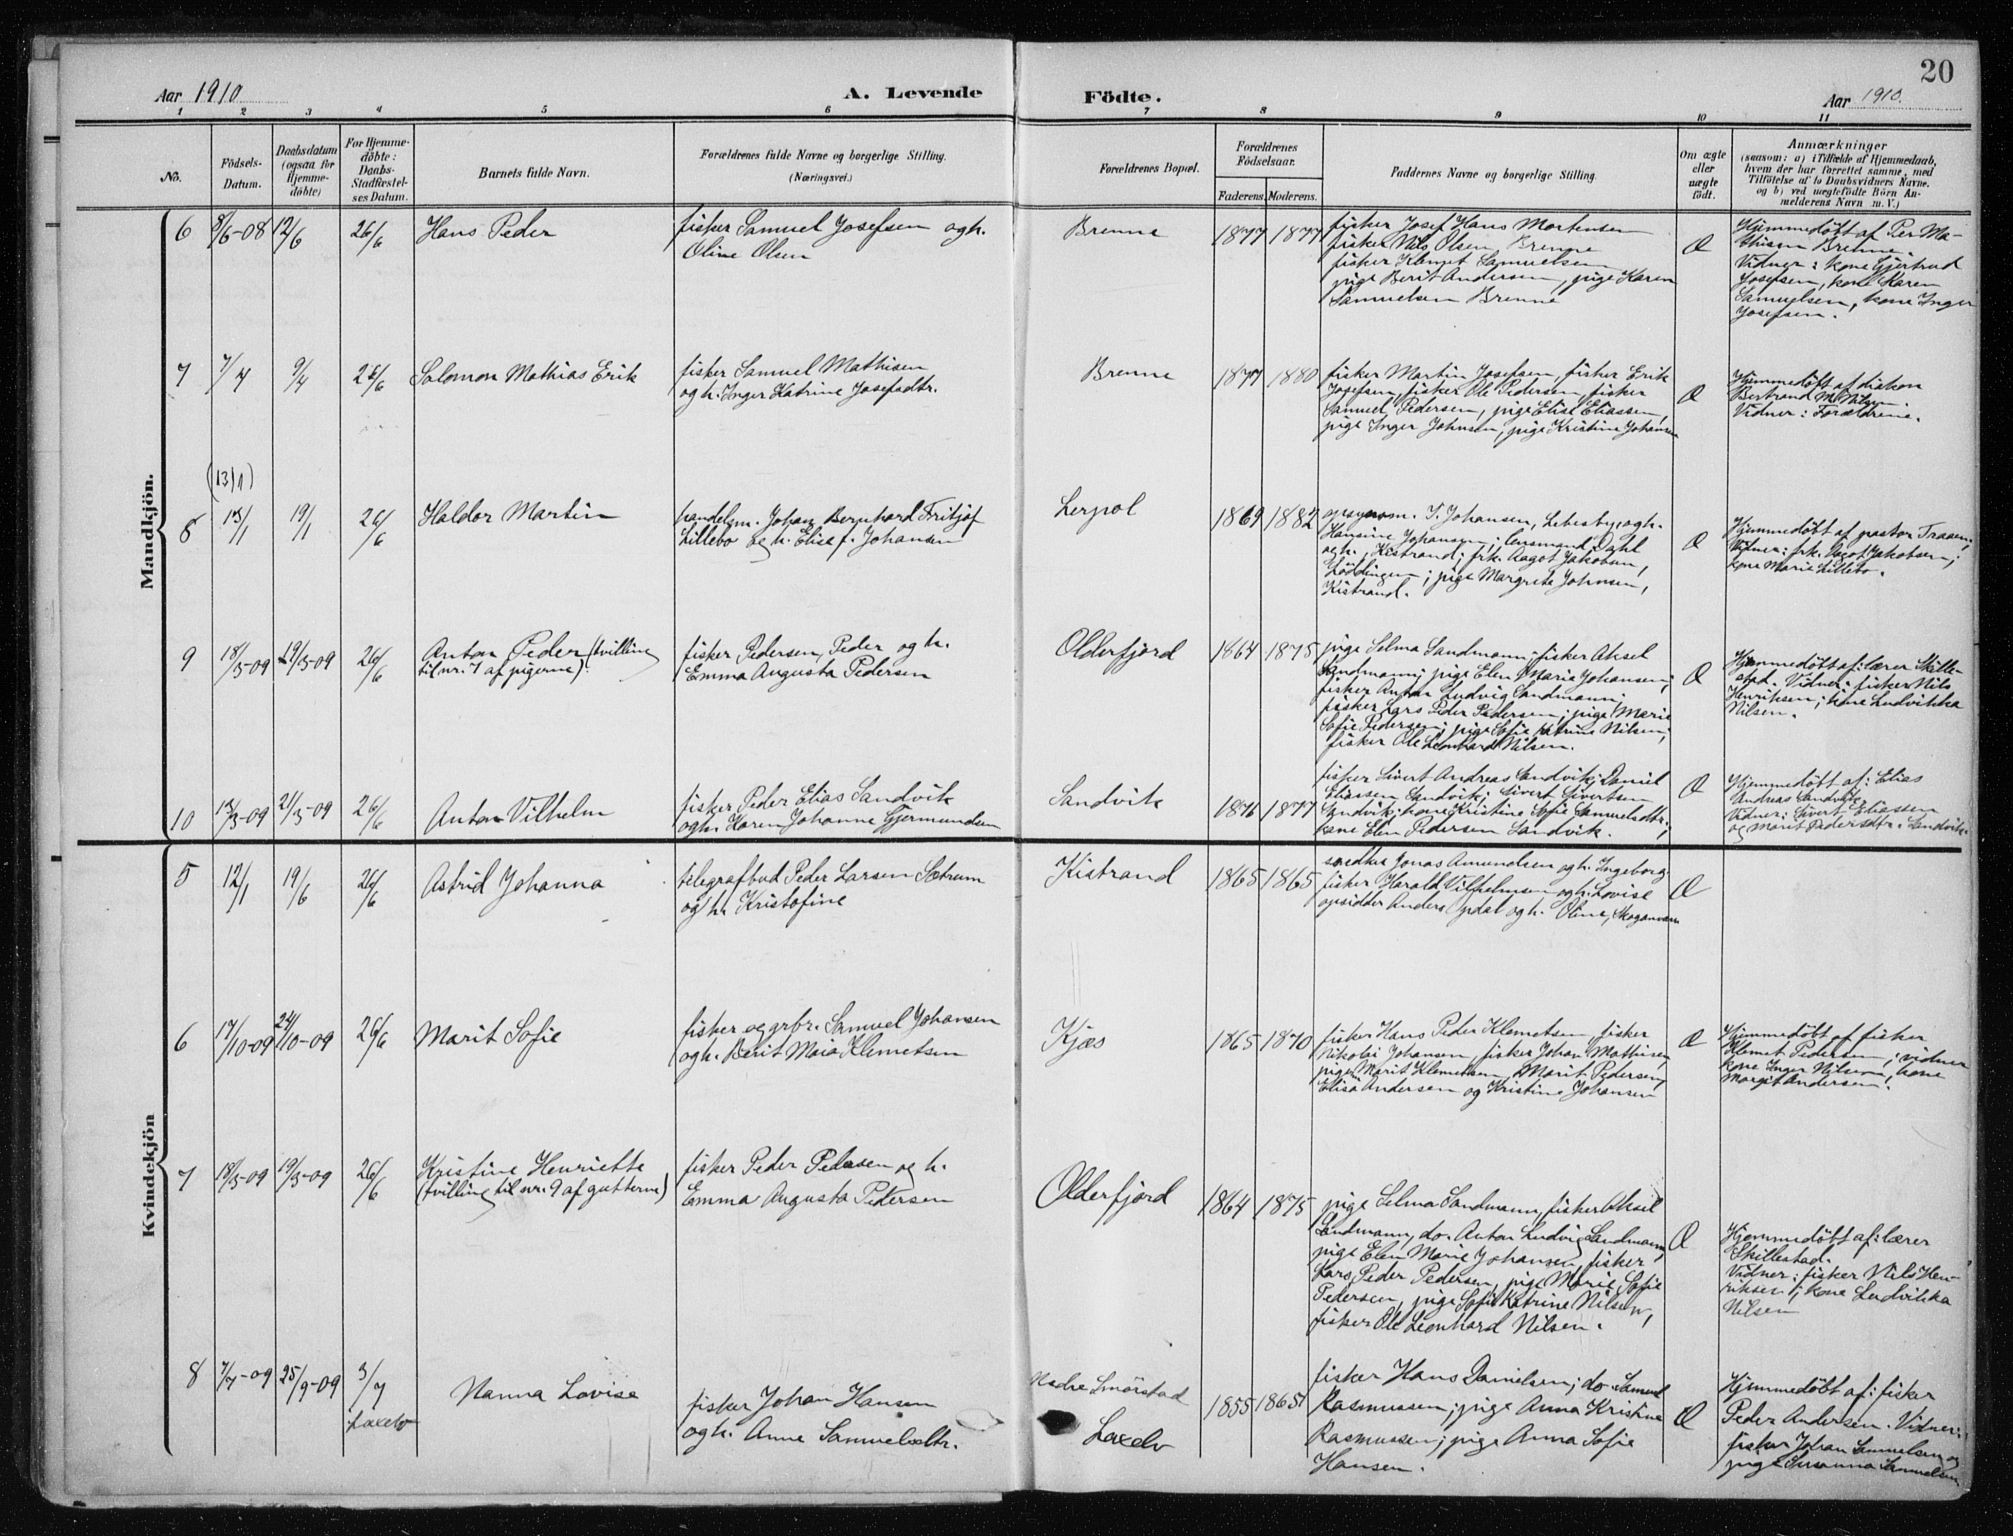 20
Aar 1910
A. Levende Födte.
Aar 1910.
1 2 3 4 5 6 7 8 9 10 11
No.
Födsels-
Datum.
Daabsdatum
(ogsaa for
Hjemme-
döbte)
For Hjemme-
döbte:
Daabs-
Stadfæstel-
ses Datum.
Barnets fulde Navn.
Forældrenes fulde Navne og borgerlige Stilling.
(Næringsvei.)
Forældrenes Bopæl.
Forældrenes
Födselsaar.
Faderens. Moderens.
Faddernes Navne og borgerlige Stilling.
Om ægte
eller
uægte
födt.
Anmærkninger
(saasom: a) i Tilfælde af Hjemmedaab,
hvem der har forrettet samme, med
Tilföielse af to Daabsvidners Navne.
og b) ved uægtefödte Börn An-
melderens Navn m. V.)
Mandkjön.
6
8/6-08
12/6
26/6
Hans Peder
fisker Samuel Josefsen og h.
Oline Olsen
Brenne
1877
1877
fisker Josef Hans Mortensen
fisker Nils Olsen, Brenne
fisker Klemet Samuelsen
pige Berit Andersen, pige Karen
Samuelsen Brenne
Æ
Hjemmedöbt af Per Ma-
thisen Brenne
Vidner: kone Gjertrud
Josefsen, kone Karen
Samuelsen, kone Inger
Josefsen.
7
7/4
9/4
26/6
Salomon Mathias Erik
fisker Samuel Mathisen
og h. Inger Katrine Josefsdtr.
Brenne
1877
1880
fisker Martin Josefsen, fisker Erik
Josefsen, fisker Ole Pedersen, fisker
Samuel Pedersen, pige Elise Eliassen,
pige Inger Johnsen, pige Kristine Johansen
Æ
Hjemmedöbt af diakon
Bertrand M. Nilsen.
Vidner: Forældrene.
(13/1)
8
13/1
19/1
26/6
Haldor Martin
handelsm. Johan Bernhard Fritjof
Lillebo og h. Elise f. Johansen
Lerpol
1869
1882
opsynsm. I. Johansen, Lebesby, og h.
Hansine Johansen; lensmand Dahl
og h., Kistrand; frk. Aagot Jakobsen,
Lödingen; pige Margrete Johnsen,
Kistrand.
Æ
Hjemmedöbt af pastor Traaen;
Vidner: frk. Aagot Jakobsen;
kone Marie Lillebo.
9
18/3-09
19/3-09
26/6
Anton Peder (tvilling
til nr. 7 af pigerne)
fisker Pedersen, Peder og h.
Emma Augusta Pedersen
Olderfjord
1864
1875
pige Selma Sandmann; fisker Aksel
Sandmann; pige Elen Marie Johansen;
fisker Anton Ludvig Sandmann;
fisker Lars Peder Pedersen; pige Marie
Sofie Pedersen; pige Sofie Katrine Nilsen;
fisker Ole Leonhard Nilsen.
Æ
Hjemmedöbt af: lærer Skille-
stad. Vidner: fisker Nils
Henriksen; kone Ludvikka
Nilsen.
10
13/3-09
21/3-09
26/6
Anton Vilhelm
fisker Peder Elias Sandvik
og h. Karen Johanne Gjermundsen
Sandvik
1876
1877
fisker Sivert Andreas Sandvik; Daniel
Eliassen Sandvik; Sivert Sivertsen
Sandvik; kone Kristine Sofie Samuelsdtr.;
kone Elen Pedersen Sandvik.
Æ
Hjemmedöbt af: Elias
Andreas Sandvik
Vidner: Sivert Eliassen
og Marit Pedersdtr. Sandvik.
Kvindekjön
5
12/1
19/6
26/6
Astrid Johanna
telegrafbud Peder Larsen Sætrum
og h. Kristofine
Kistrand
1865
1865
smedker Jonas Amundsen og h. Ingeborg
fisker Harald Vilhelmsen og h. Lovise
opsidder Anders Opdal og h. Oline, Skoganvarre
Æ
6
17/10-09
24/10-09
26/6
Marit Sofie
fisker og grbr. Samuel Johansen
og h. Berit Maia Klemetsen
Kjæs
1865
1870
fisker Hans Peder Klemetsen, fisker
Nikolai Johansen, fisker Johan Mathisen,
pigerne Marit Klemetsen, Marit Pedersen,
Elisa Andersen og Kristine Johansen
Æ
Hjemmedöbt af fisker
Klemet Pedersen; vidner
kone Inger Nilsen, kone
Margit Andersen.
7
18/3-09
19/3-09
26/6
Kristine Henriette
(tvilling til nr. 9 af gutterne)
fisker Peder Pedersen og h.
Emma Augusta Petersen
Olderfjord
1864
1875
pige Selma Sandmann, fisker Aksel
Sandmann, do. Anton Ludvig Sandmann,
pige Elen Marie Johansen, fisker
Lars Peder Pedersen, pige Marie Sofie
Pedersen, pige Sofie Katrine Nilsen,
fisker Ole Leonhard Nilsen.
Æ
Hjemmedöbt af: lærer
Skillestad.
Vidner: fisker Nils Hen-
riksen; kone Ludvikka
Nilsen
8
7/7-09
25/9-09
3/7
Laxelv
Nanna Lovise
fisker Johan Hansen
og h. Anne Samuelsdtr.
Nedre Smörstad
Laxelv
1855
1865
fisker Hans Danielsen; do. Samuel
Rasmussen; pige Anna Kristine
Rasmussen; pige Anna Sofie
Hansen.
Æ
Hjemmedöbt af: fisker
Peder Andersen. Vidner:
fisker Johan Samuelsen og
pige Susanna Samuelsen